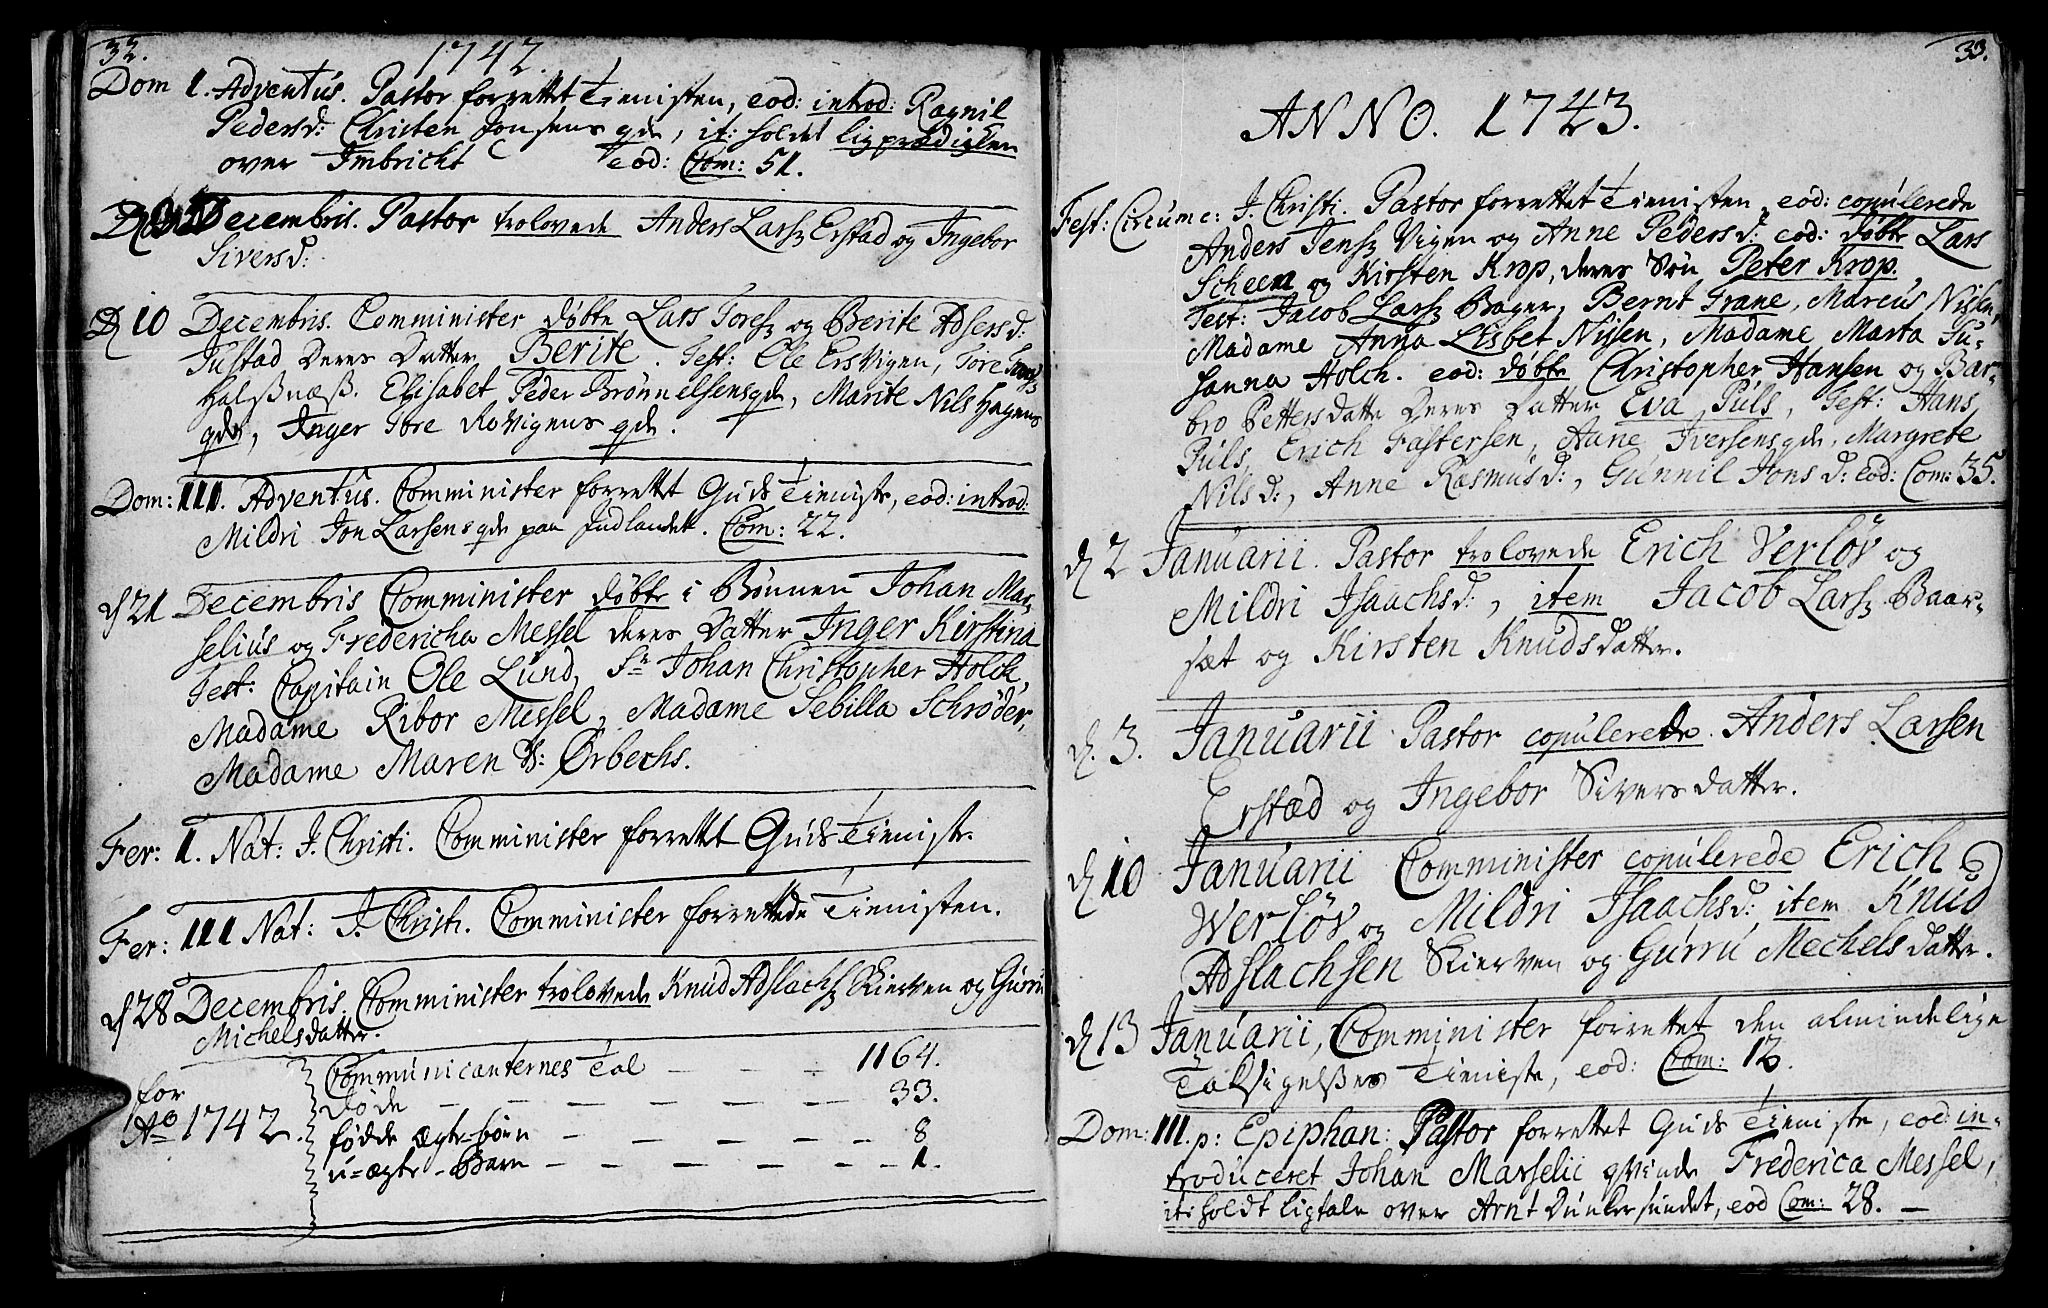 32.
1742.
Dom 1. Adventus. Pastor forrettet Tienisten, eod: introd: Ragnil
Pedersd: Christen Jonsens qde, it: holdet ligprædiken
over Imbricht eod: Com: 51.
Decembris. Pastor trolovede Anders Larss Erstad og Ingebor
Siversd:
D 10 Decembris. Comminister døbte Lars Toress og Berite Adsersd:
Tustad Deres Datter Berite. Test: Ole Ersvigen, Tore
Halsnæss. Elisabet Peder Brønnelsensqde, Marite Nils Hagens
qde, Inger Tore Rovigens qde.
Dom: III. Adventus. Comminister forrettet Guds Tieniste, eod: introd:
Mildri Jon Larsensqde paa Indlandet. Com: 22.
d 21 Decembris Comminister døbte i Bønnen Johan Mar-
selius og Fredericha Messel deres Datter Inger Kirstina
Test: Capitain Ole Lund, Sr Johan Christopher Holck,
Madame Ribor Messel, Madame Sebilla Schrøder,
Madame Maren S: Ørbechs.
Fer: I. Nat: J. Christi. Comminister forrettet Guds Tieniste.
Fer: III Nat: J. Christi. Comminister forrettede Tienisten.
d 28 Decembris. Comminister trolovede Knud Adslachss Skierven og Gurru
Michelsdatter.
for
Ao 1742.
Communicanternes Tal — — — 1164.
Døde — — — — — — — 33.
fødde ægte-børn — — — — — 8
u=ægte-Barn — — — — — — 1.
33.
ANNO. 1743.
Fest: Circumc: J. Christi. Pastor forrettet Tienisten, eod: copulerede
Anders Jenss Vigen og Anne Pedersd: eod: døbte Lars
Scheen og Kirsten Krop, deres Søn Peter Krop.
Test: Jacob Larss Bager, Bernt Trane, Marcus Nissen,
Madame Anna Lisbet Nissen, Madame Marta Su-
sanna Holck. eod: døbte Christopher Hansen og Bar-
bro Pettersdatter Deres Datter Eva Puls, Test: Hans
Puls, Erich Fastersen, Anne Iversensqde, Margrete
Nilsd:, Anne Rasmusd:, Gunnil Jonsd: eod: Com: 35.
d 2 Januarii. Pastor trolovede Erich Verløv og
Mildri Isaachsd:, item Jacob Larss Baar-
sæt og Kirsten Knudsdatter.
d. 3. Januarii Pastor copulerede Anders Larsen
Erstæd og Ingebor Siversdatter.
d 10 Januarii Comminister copulerede Erich
Werløv og Mildri Isaachsd: item Knud
Adslachsen Skierven og Gurru Mechelsdatter.
d 13 Januarii, Comminister forrettet den almindelige
Taksigelses Tieniste, eod: Com: 12.
Dom: III. p: Epiphan: Pastor forrettet Guds Tieniste, eod: in-
troduceret Johan Marselii qvinde Frederica Messel,
it: holdt ligtale over Arnt Dunkersundet, eod Com: 28. —